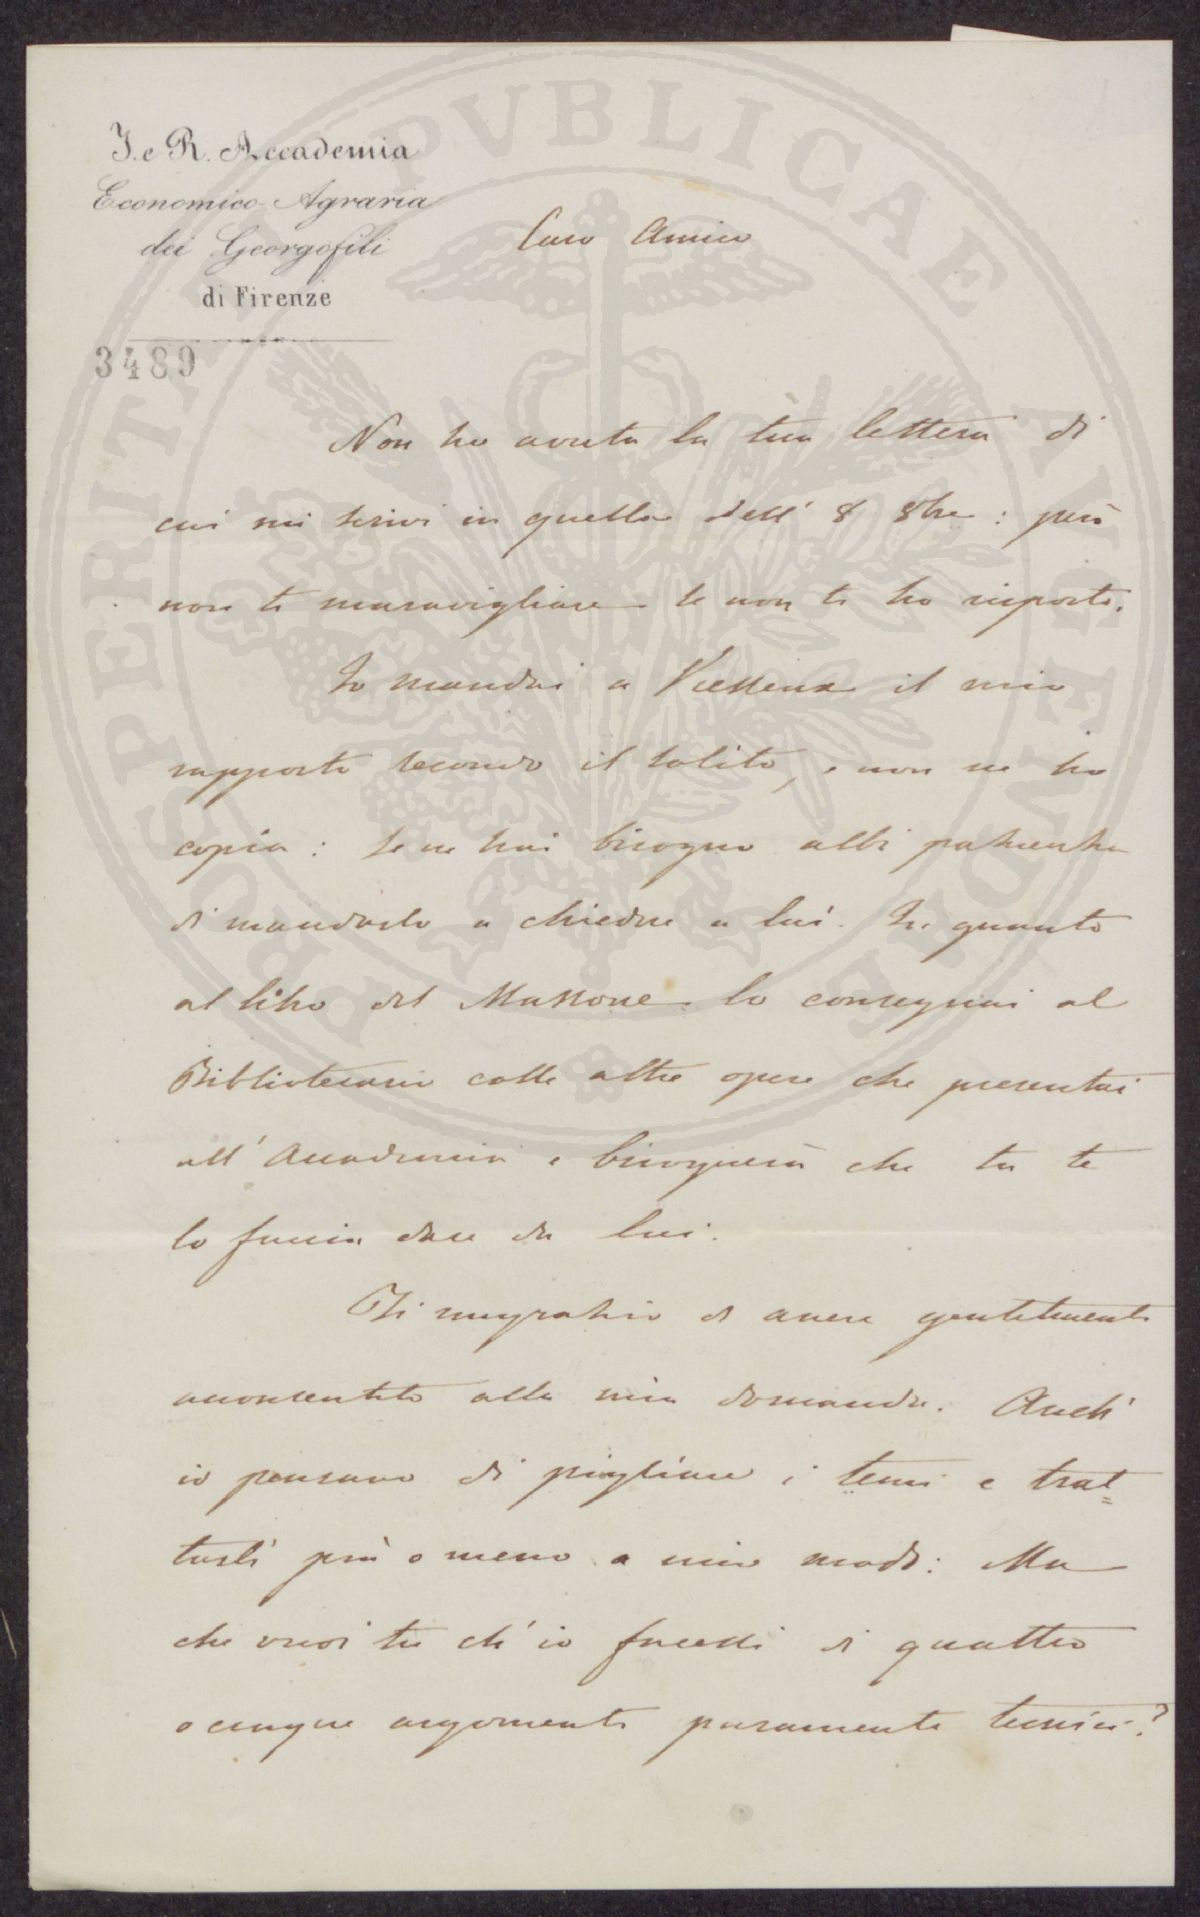 I. e R. Accademia
Economico-Agraria
dei Georgofili
di Firenze
3489
PROSPERITATI PVBLICAE AVGENDAE
Caro Amico
Non ho avuta la tua lettera di
cui mi scrivi in quella dell' 8 8bre: però
non ti maravigliare se non ti ho risposto.
Io mandai a Viesseux il mio
rapporto secondo il solito, e non ne ho
copia: se ne hai bisogno abbi pazienza
di mandarlo a chiedere a lui. In quanto
al libro del Massone lo consegnai al
Bibliotecario colle altre opere che presentai
all' Accademia e bisognerà che tu te
lo faccia dare da lui.
Ti ringrazio di avere gentilmente
acconsentito alla mia domanda. Anch'
io pensavo di pigliare i temi e trat=
tarli più o meno a mio modo: Ma
che vuoi tu ch' io facessi di quattro
o cinque argomenti puramente tecnici?